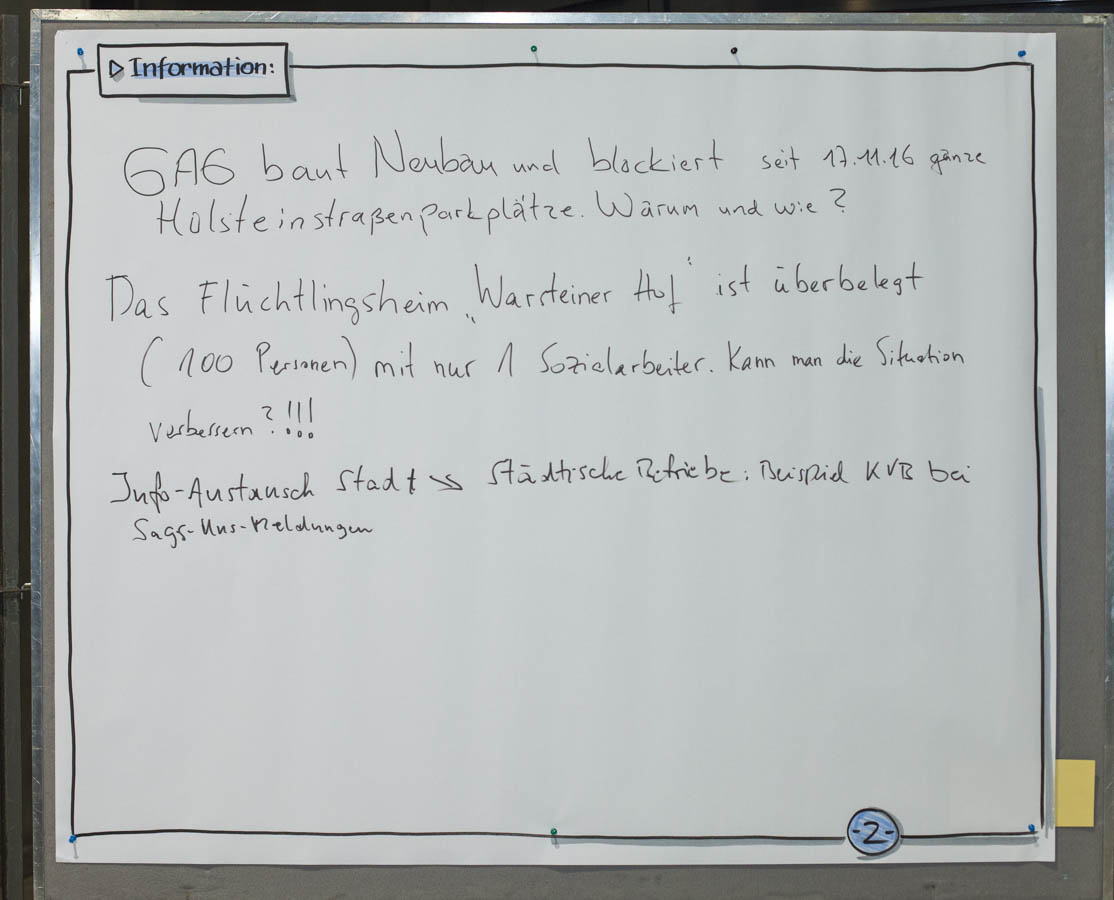 ▷ Information:
GAG baut Neubau und blockiert seit 17.11.16 gänze
Holsteinstraßenparkplätze. Wärum und wie?
Das Flüchtlingsheim „Warsteiner Hof" ist überbelegt
(100 Personen) mit nur 1 Sozialarbeiter. Kann man die Situation
verbessern?!!!
Info-Austausch Stadt ↘ Städtische Betriebe: Beispiel KVB bei
Sags-Uns-Meldungen
-2-